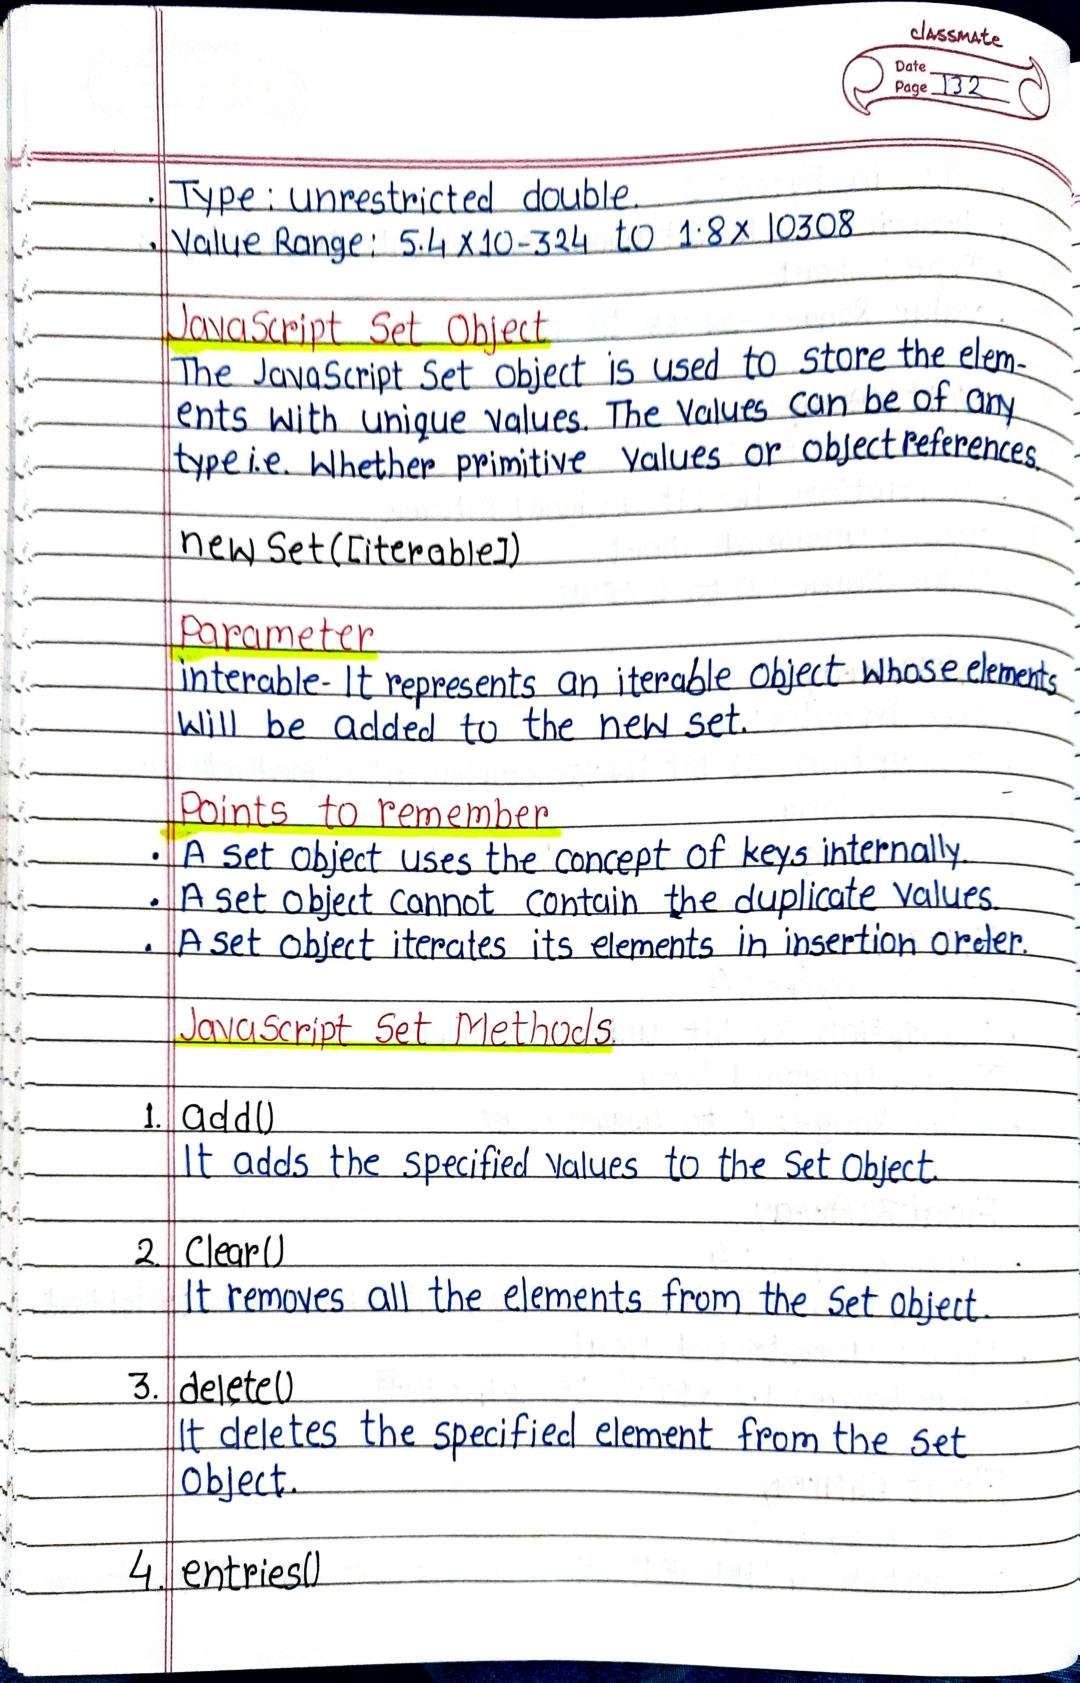 classmate
Date
Page 132
. Type: unrestricted double.
. Value Range: 5.4 x 10-324 to 1.8 x 10308
JavaScript Set Object
The JavaScript Set object is used to store the elem-
ents with unique values. The values can be of any
type i.e. Whether primitive values or object references.
new Set([iterable])
Parameter
interable- It represents an iterable object whose elements
will be added to the new set.
Points to remember
. A set object uses the concept of keys internally.
. A set object cannot contain the duplicate values.
. A set object iterates its elements in insertion order.
JavaScript Set Methods.
1. add()
It adds the specified values to the Set Object.
2. Clear()
It removes all the elements from the Set object.
3. delete()
It deletes the specified element from the set
object.
4. entries()